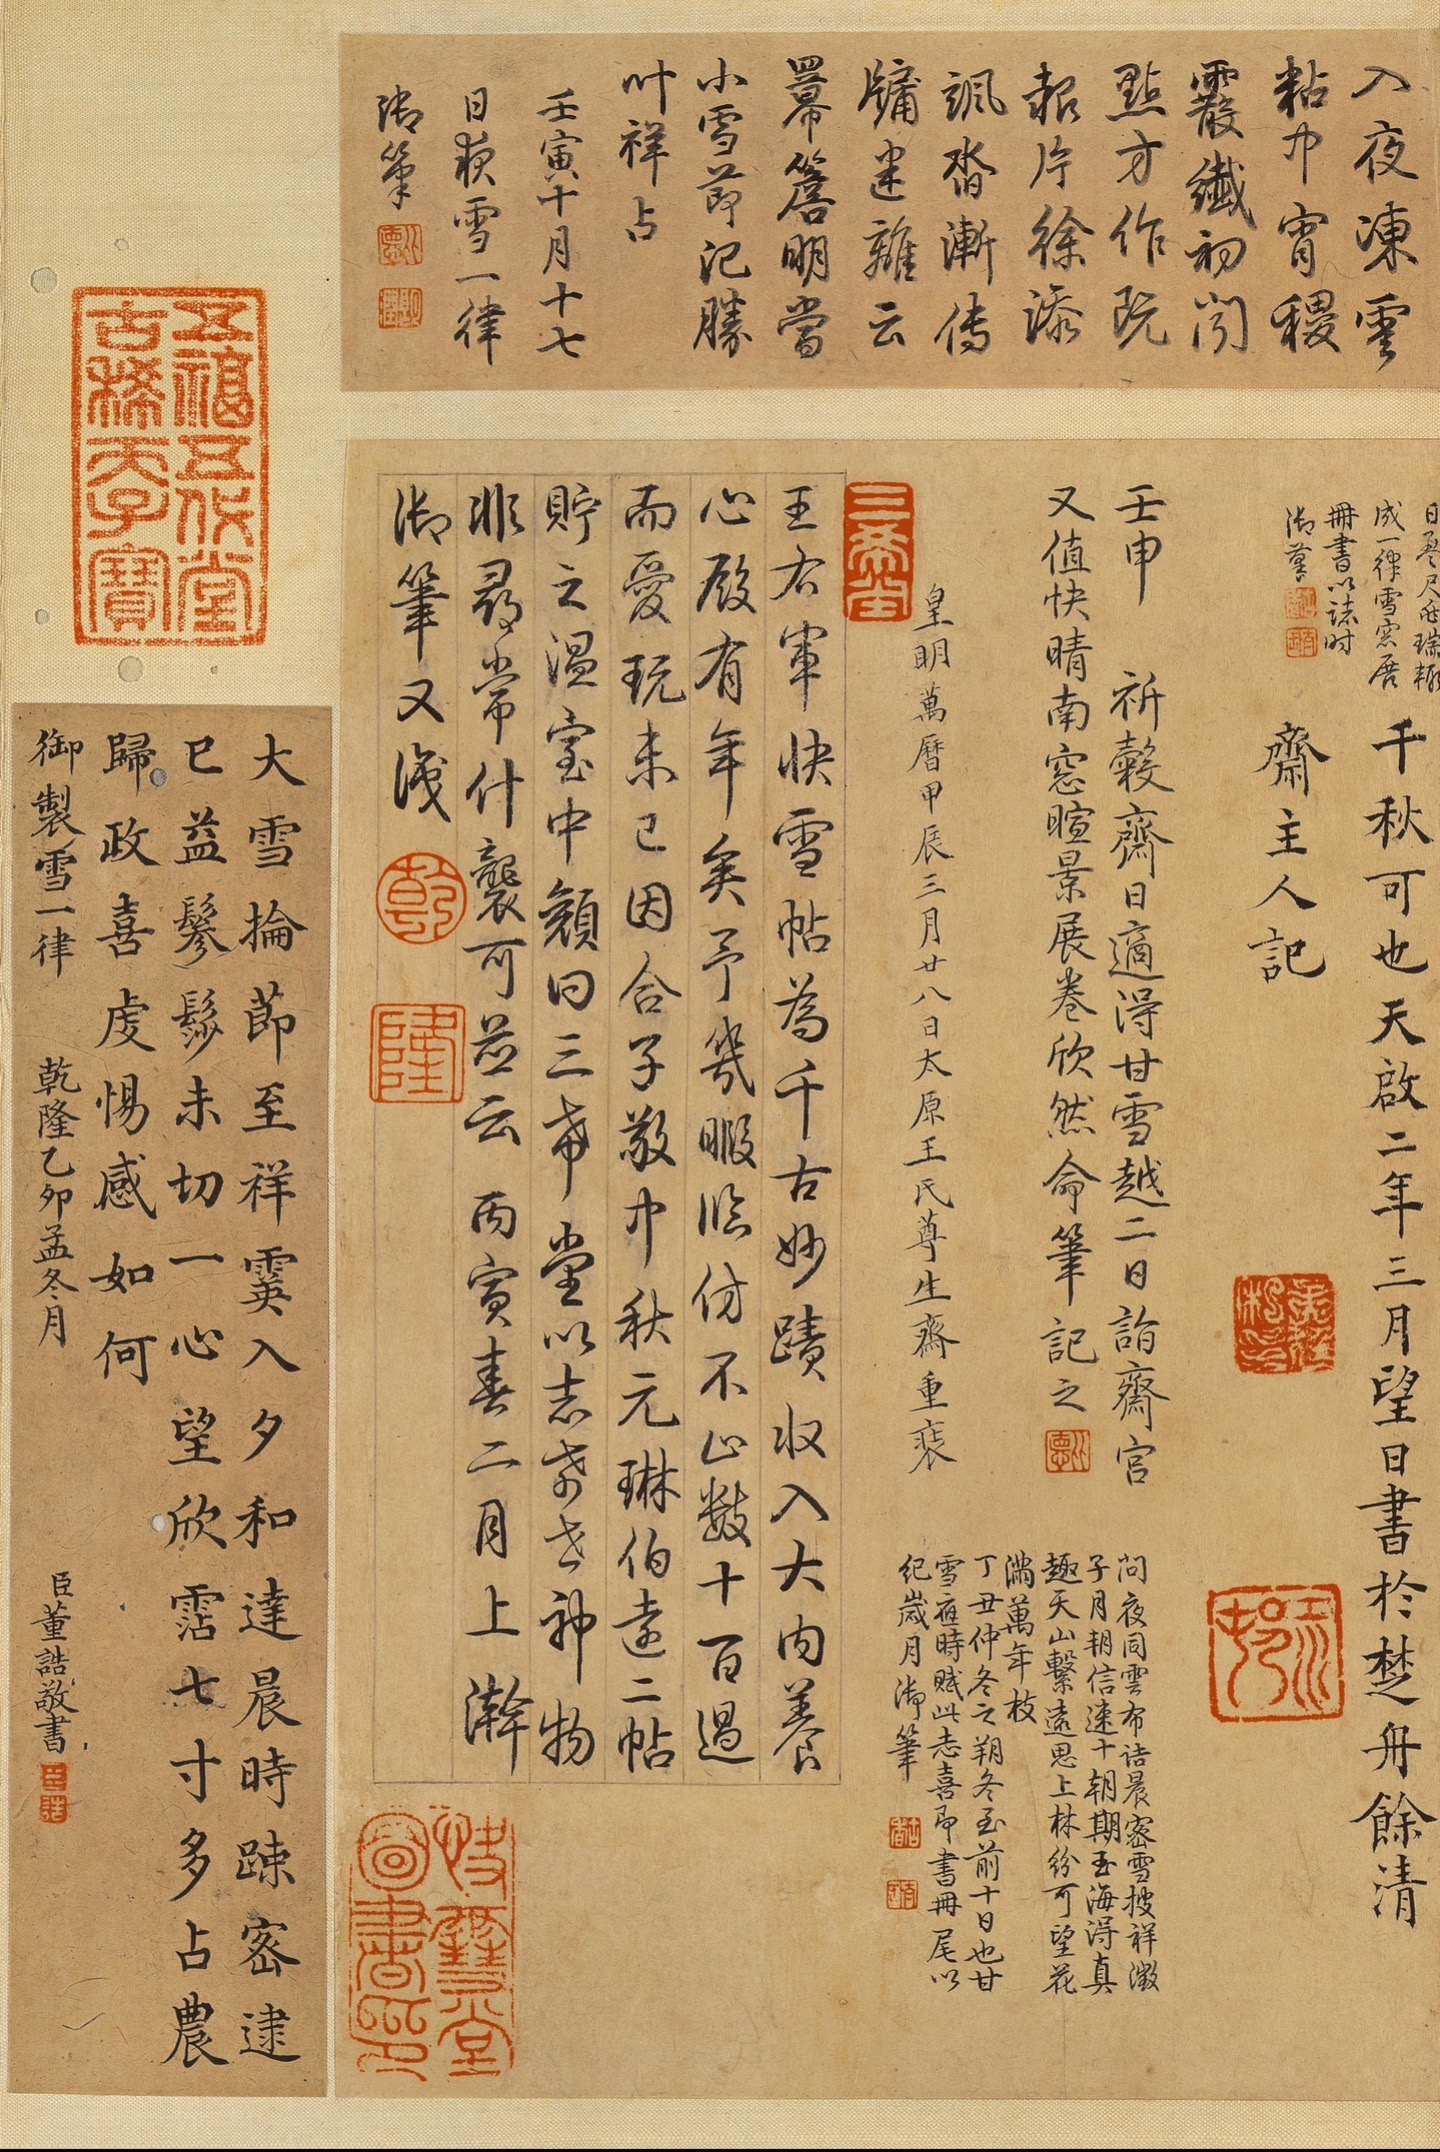 入夜凍雲
粘巾宵稷
霰纖初閃
點方作既
報片徐添
諷喈漸傳
牖迷離云
羃簷明當
小雪節記勝
叶祥占
壬寅十月十七
日夜雪一律
御筆
日盈尺
成一律雪窓展
冊書以誌时
御筆
千秋可也天啟二年三月望日書於楚舟餘清
齋主人記
壬申 祈穀齋日適得甘雪越二日詣齋宮
又值快晴南窓暄景展卷欣然命筆記之
皇明萬曆甲辰三月廿八日太原王氏尊生齋重裝
同夜同雲布詰晨密雪披祥澂
子月朔信速十朝期玉海得真
趣天山繫遠思上林紛可望花
滿萬年枝
丁丑仲冬之朔冬至前十日也甘
雪應時賦此志喜即書冊尾以
紀歲月御筆
三希堂
王右軍快雪帖為千古妙蹟收入大內養
心殿有年矣予幾暇臨仿不止數十百過
而愛玩未已因合子敬中秋元琳伯遠二帖
貯之溫室中顏曰三希堂以志希世神物
非尋常什襲可並云 丙寅春二月上澣
御筆又識
乾
隆
快雪堂
五福五代堂
古稀天子寶
大雪掄節至祥霙入夕和達晨時疎密逮
巳益鬖髿未切一心望欣霑七寸多占農
歸政喜虔惕感如何
御製雪一律 乾隆乙卯孟冬月 臣董誥敬書